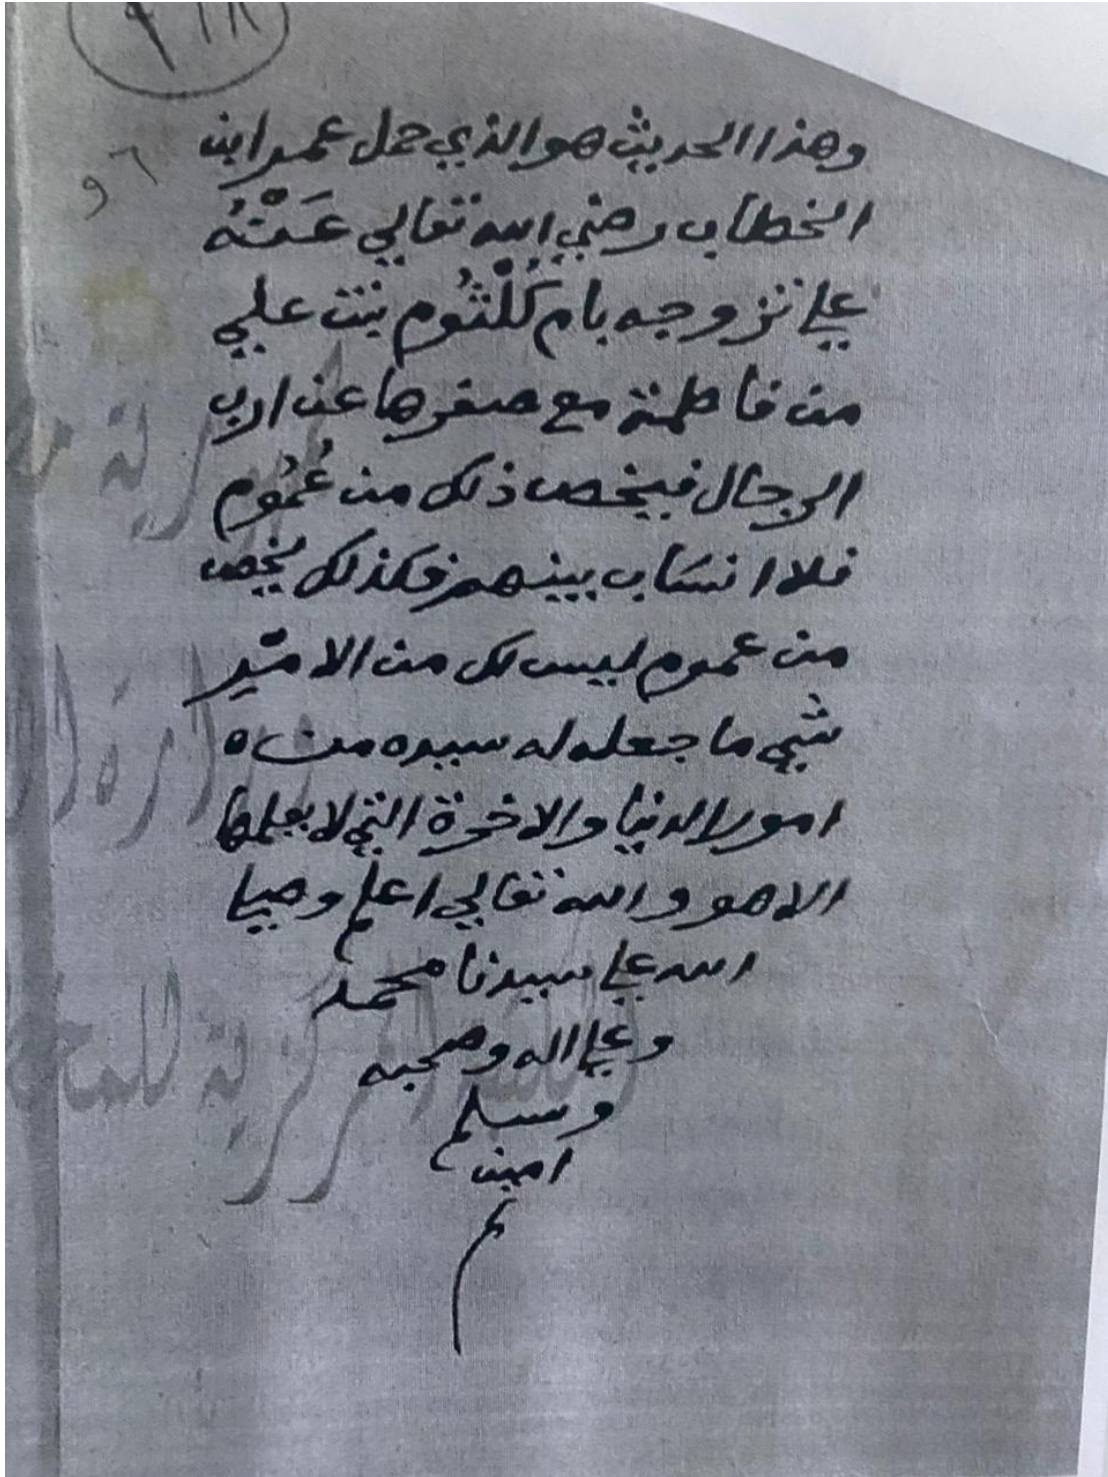 ٩١٨
٩٦
وهذا الحديث هو الذي حمل عمر ابن
الخطاب رضي الله تعالي عَنْهُ
علي تزوجه بام كُلْثُوم بنت علي
من فاطمة مع صغرها عن ارب
الرجال فيخص ذلك من عُمُوم
فلا انسَاب بينهم فكذلك يخص
من عموم ليس لك من الامر
شيء ما جعله له سيده من ه
امور الدنيا والاخرة التي لا يعلمها
الا هو والله تعالي اعلم وصلي
الله علي سيدنا محمد
وعلي اله وصحبه
وسلم
امين
م